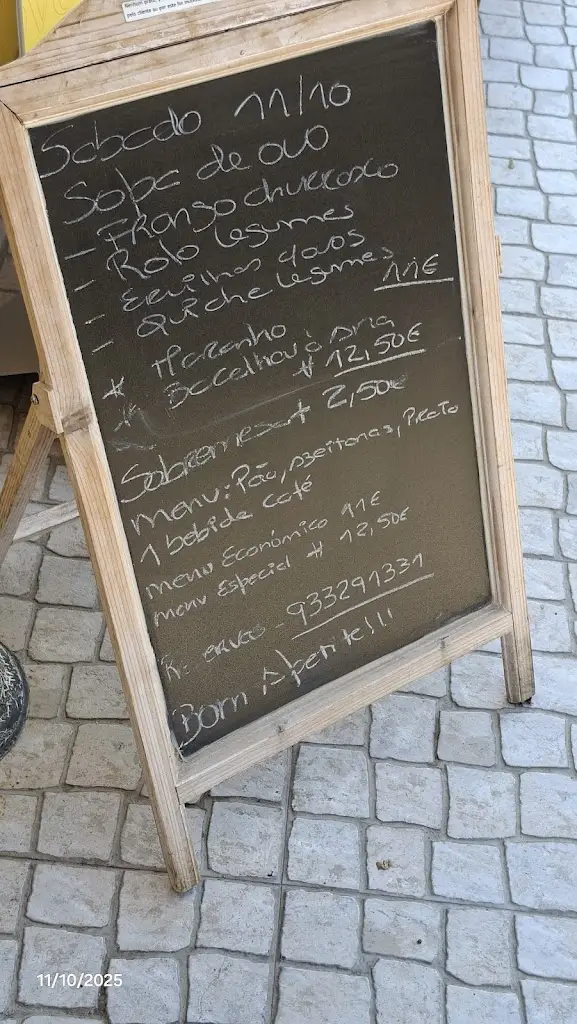 Sabado 11/10
Sopa de ovo
- FRANGO churrasco
- Rolo legumes
- Ervilhas c/ovos
- Quiche legumes 11€
* Maranho
* Bacalhau à
# 12,50€
Sobremesa + 2,50€
menu: Pão, Azeitonas, Prato
1 bebida café
menu Económico 11€
menu Especial # 12,50€
Reservas - 933291331
Bom Apetite!!!
11/10/2025